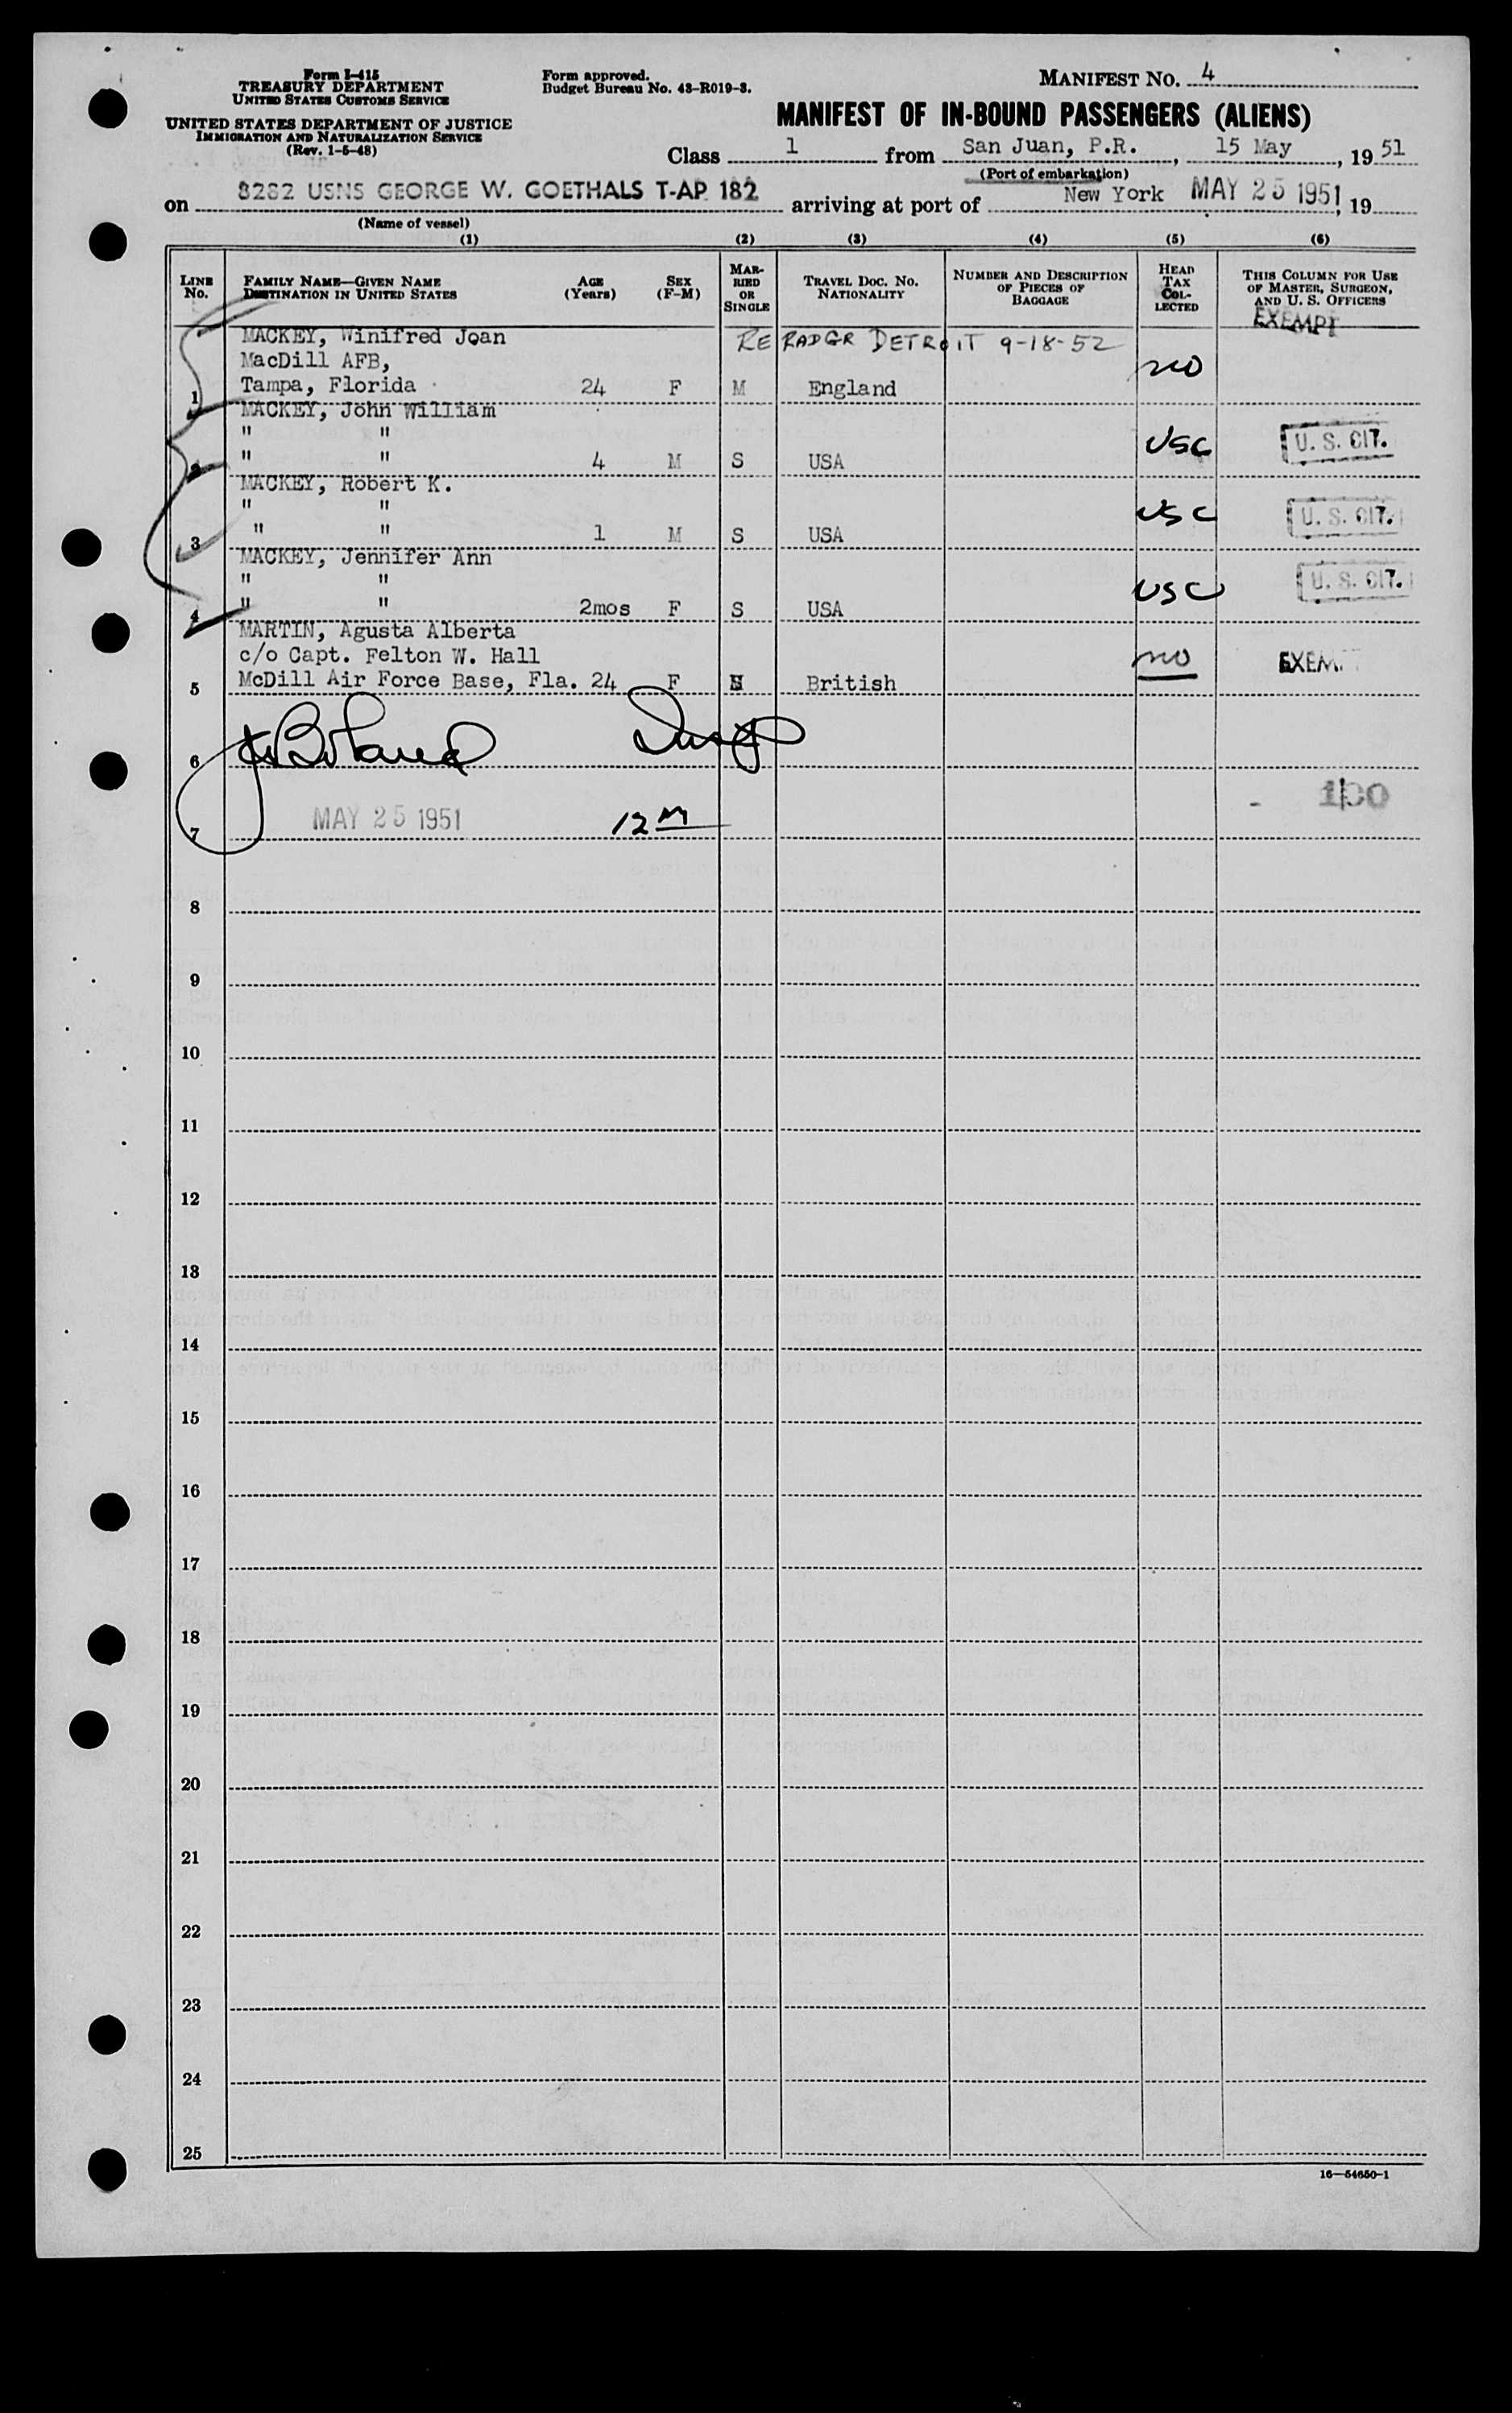 Form I-415
TREASURY DEPARTMENT
UNITED STATES CUSTOMS SERVICE
UNITED STATES DEPARTMENT OF JUSTICE
IMMIGRATION AND NATURALIZATION SERVICE
(Rev. 1-5-48)
Form approved.
Budget Bureau No. 43-R019-3.
MANIFEST NO. 4
MANIFEST OF IN-BOUND PASSENGERS (ALIENS)
Class 1 from San Juan, P.R., 15 May, 19 51
(Port of embarkation)
on 8282 USNS GEORGE W. GOETHALS T-AP 182 arriving at port of New York MAY 25 1951, 19
(Name of vessel)
(1) (2) (3) (4) (5) (6)
LINE No. FAMILY NAME—GIVEN NAME DESTINATION IN UNITED STATES AGE (Years) SEX (F-M) MARRIED OR SINGLE TRAVEL DOC. NO. NATIONALITY NUMBER AND DESCRIPTION OF PIECES OF BAGGAGE HEAD TAX COLLECTED THIS COLUMN FOR USE OF MASTER, SURGEON, AND U. S. OFFICERS
EXEMPT
MACKEY, Winifred Joan RE RADGR DETROIT 9-18-52
MacDill AFB, no
1 Tampa, Florida 24 F M England
MACKEY, John William
" " USC U. S. CIT.
2 " " 4 M S USA
MACKEY, Robert K.
" " USC U. S. CIT.
3 " " 1 M S USA
MACKEY, Jennifer Ann
" " USC U. S. CIT.
4 " " 2mos F S USA
MARTIN, Agusta Alberta
c/o Capt. Felton W. Hall no EXEM
5 McDill Air Force Base, Fla. 24 F British
6
- 100
7 MAY 25 1951 12 M
8
9
10
11
12
13
14
15
16
17
18
19
20
21
22
23
24
25
16—54650-1